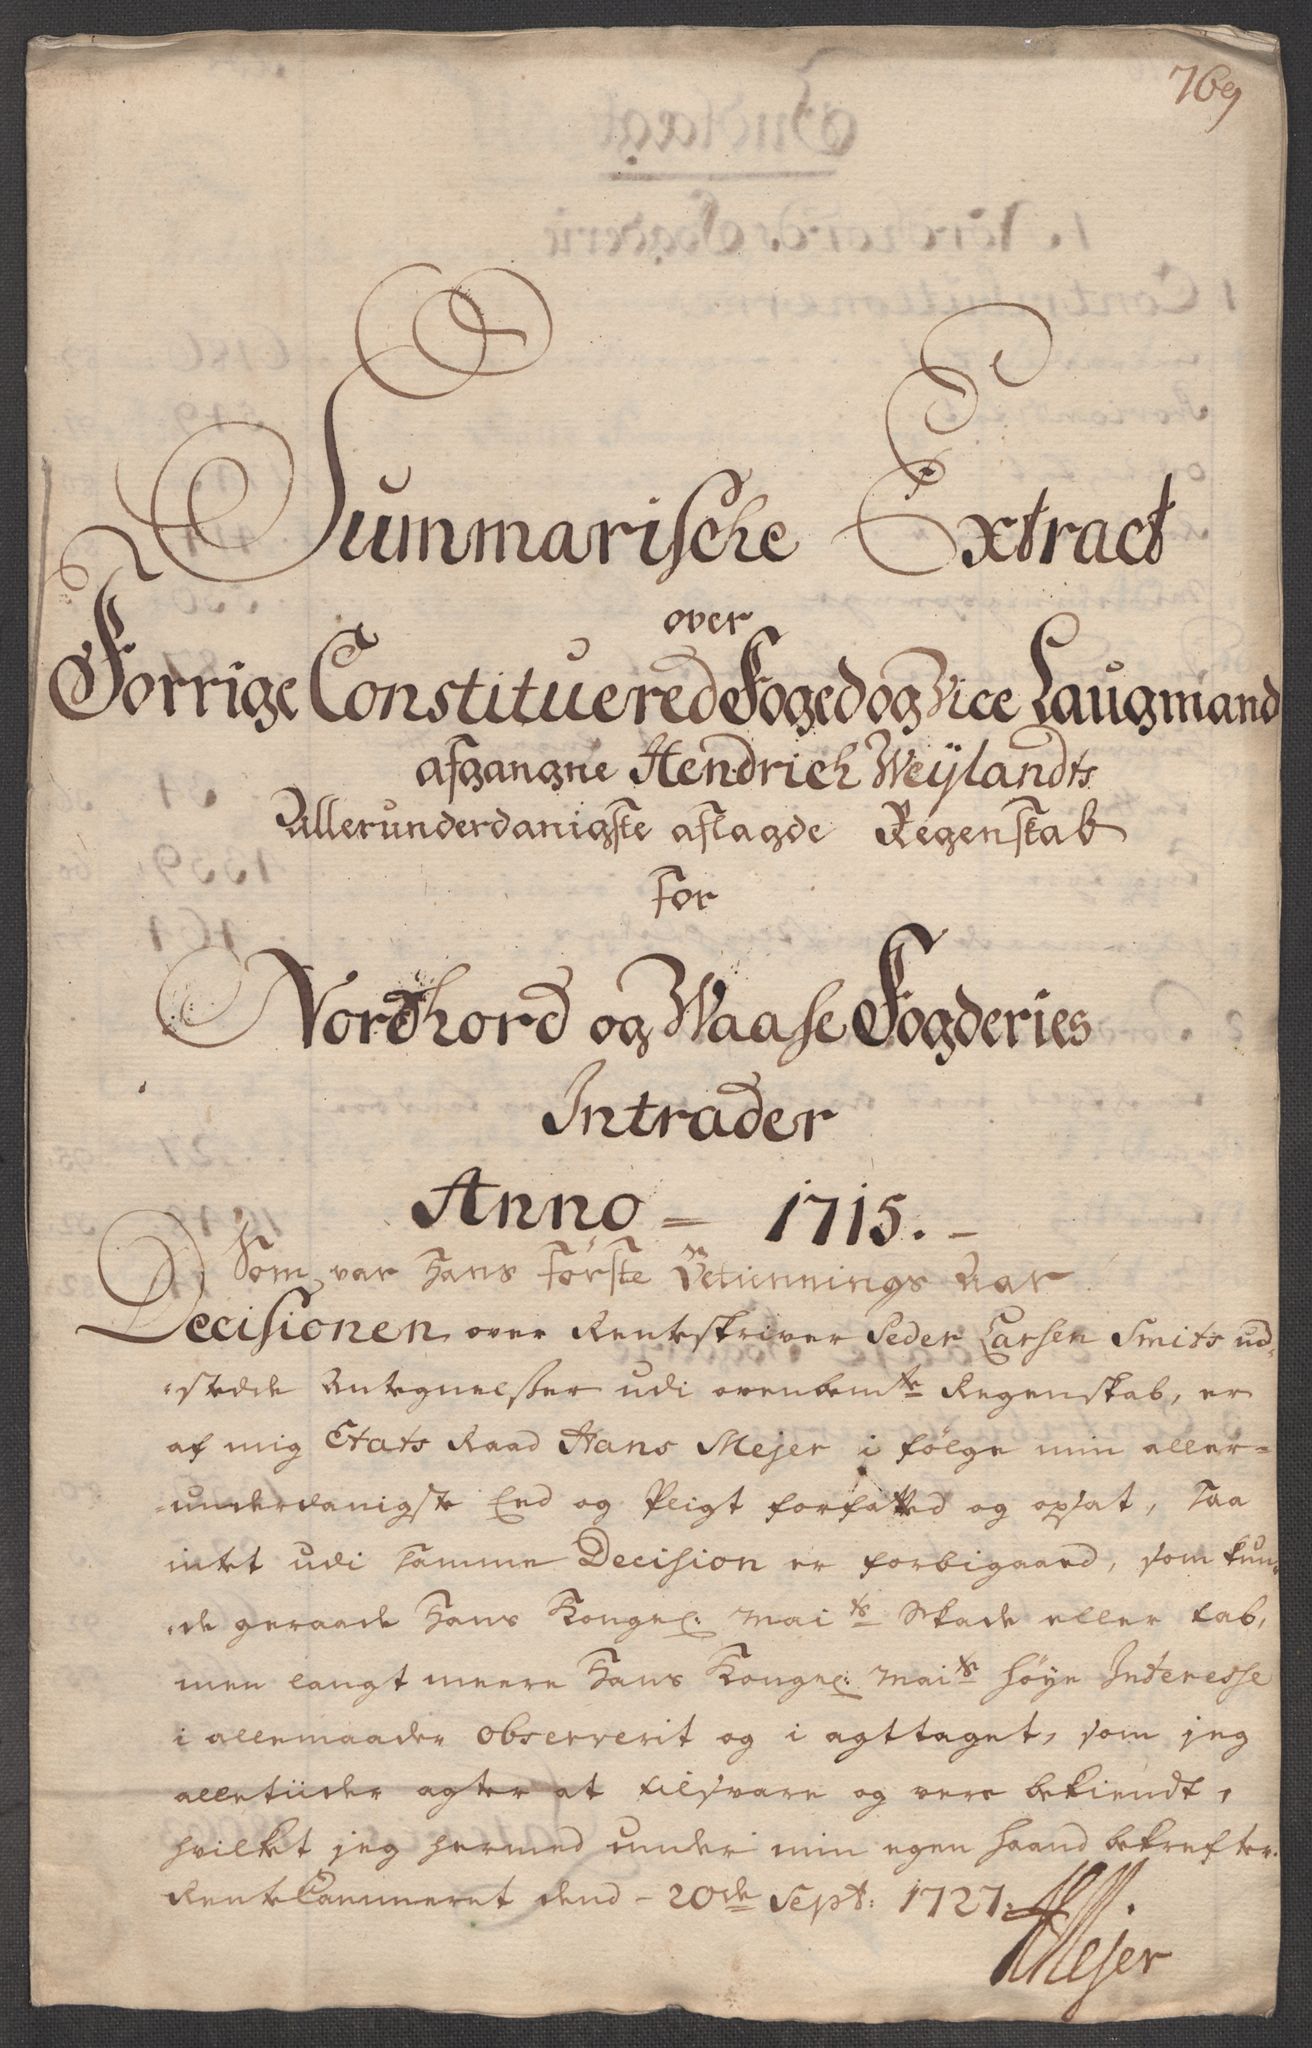 769
Summarische Extract
over
Forrige Constituered Foged og Vice Laugmand
afgangne Hendrich Weÿlandts
Allerunderdanigste aflagde Regenskab
for
Nordhord og Waase Fogderies
Intrader
Anno = 1715. -
Som var Hans første Betiennings Aar
Decisionen over Rentskriver Peder Larsen Smits ud-
stedde Antegnelsser udi ovenbemte Regenskab, er
af mig Etats Raad Hans Mejer i følge min aller-
underdanigste Eed og Pligt forfatted og opsat, saa
intet udi samme Decision er forbigaaed, som kun-
de geraade Hans Kongel: Maits Skade eller tab,
men langt meere Hans Kongel: Maits høye Interesse
i allemaader observerit og i agttaget, som jeg
alletiider agter at tilsvare og vere bekiendt,
hvilket jeg hermed under min egen haand bekrefter.
Rentecammeret dend - 20de Sept: 1727.
HMejer